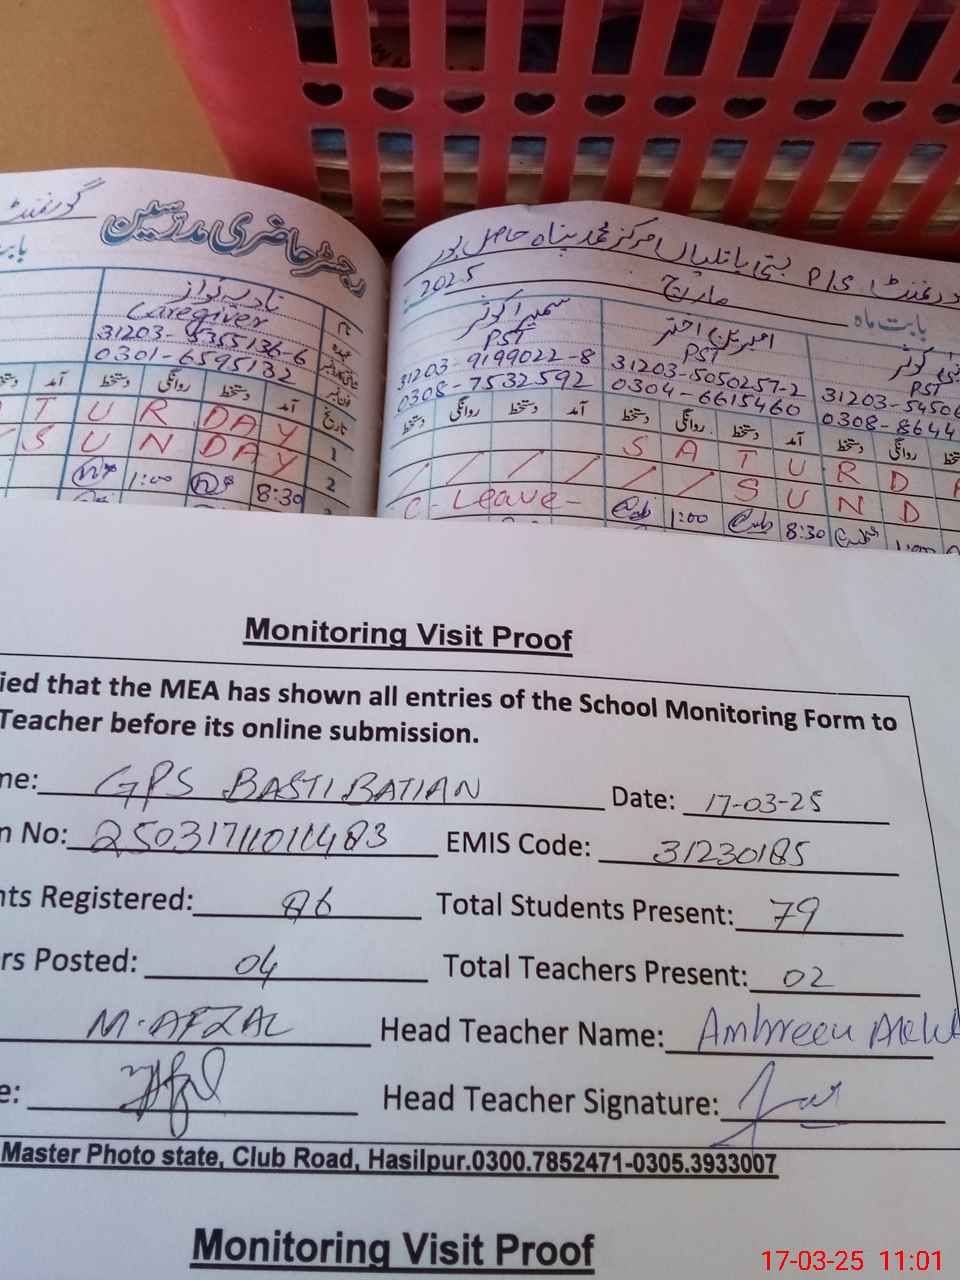 گورنمنٹ
رجسٹر حاضری مدرسین
نام
نادیہ نواز
عہدہ
Caregiver
31203-5355136-6
0301-6595132
تاریخ آمد دستخط روانگی دستخط آمد
T U R DAY 1
S U N DAY 2
1:00 8:30
P/S بستی باٹیاں مرکز محمد پناہ حاصل پور
بابت ماہ مارچ 2025
سمیرا کوثر
PST
31203-9199022-8
0308-7532592
امبرین اختر
PST
31203-5050257-2
0304-6615460
کوثر
PST
31203-5450
0308-8644
دستخط روانگی دستخط آمد دستخط روانگی دستخط آمد دستخط روانگی
S A T U R D
S U N D
C - Leave - 1:00 8:30
Monitoring Visit Proof
ied that the MEA has shown all entries of the School Monitoring Form to
Teacher before its online submission.
me: GPS BASTI BATIAN Date: 17-03-25
n No: EMIS Code: 31230185
nts Registered: 86 Total Students Present: 79
rs Posted: 04 Total Teachers Present: 02
M. AFZAL Head Teacher Name: Ambreen
e: Head Teacher Signature:
Master Photo state, Club Road, Hasilpur.0300.7852471-0305.3933007
Monitoring Visit Proof
17-03-25 11:01